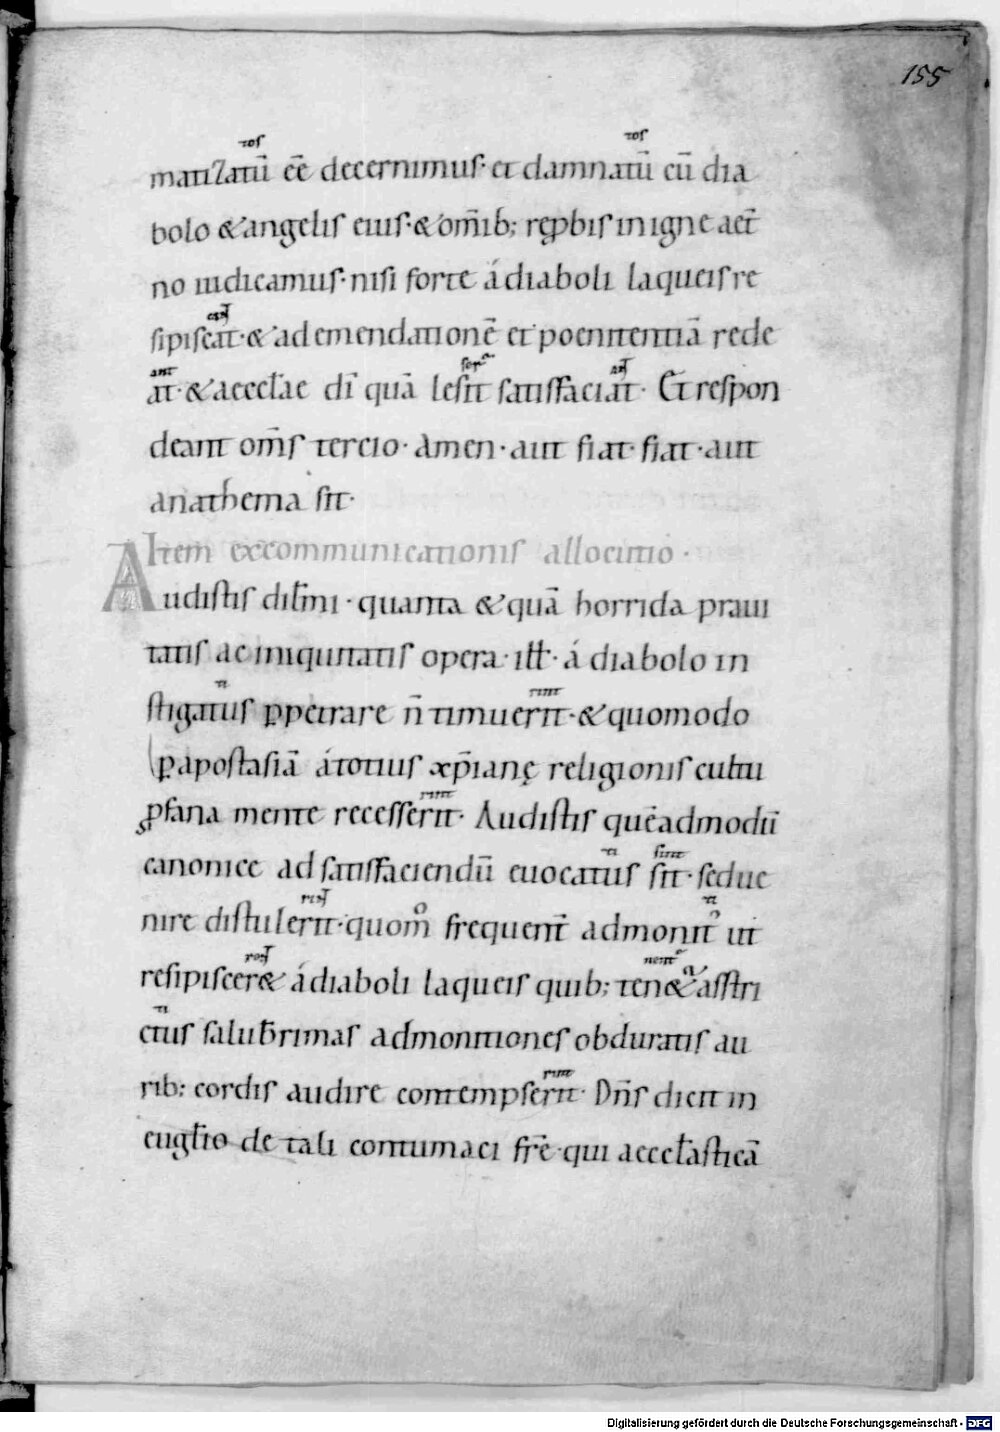 155
tos tos
matizatū ēē decernimus· et damnatū cū dia
bolo & angelis eius· & om̄ib; rep̱bis in igne aet̄
no iudicamus· nisi forte á diaboli laqueis re
sipiscat· & ad emendationē et poenitentiā rede
ant
at· & aeccl̄ae dī quā lesit satisfaciat· Et respon
deant om̄s tercio· Amen· aut fiat· fiat· aut
anathema sit·
Item excommunicationis allocutio·
Audistis dil̄mi· quanta & quā horrida praui
tatis ac iniquitatis opera· ill̄· á diabolo in
ti rint
stigatus p̱petrare n̄ timuerit· & quomodo
p̱ apostasiā á totius xp̄ianę religionis cultu
rint
p̱fana mente recesserit· Audistis quēadmodū
ti sint
canonice ad satisfaciendū euocatus sit· sed ue
rint ti
nire distulerit· quom̊ frequent̄ admonit᾽ ut
rent nent
resipiscer& á diaboli laqueis quib; ten& astri
ti
ctus salub̄rimas admonitiones obduratis au
rint
rib; cordis audire contempserit· Dn̄s dicit in
eugl̄io de tali contumaci fr̄e· qui aeccl̄asticā
Digitalisierung gefördert durch die Deutsche Forschungsgemeinschaft - DFG